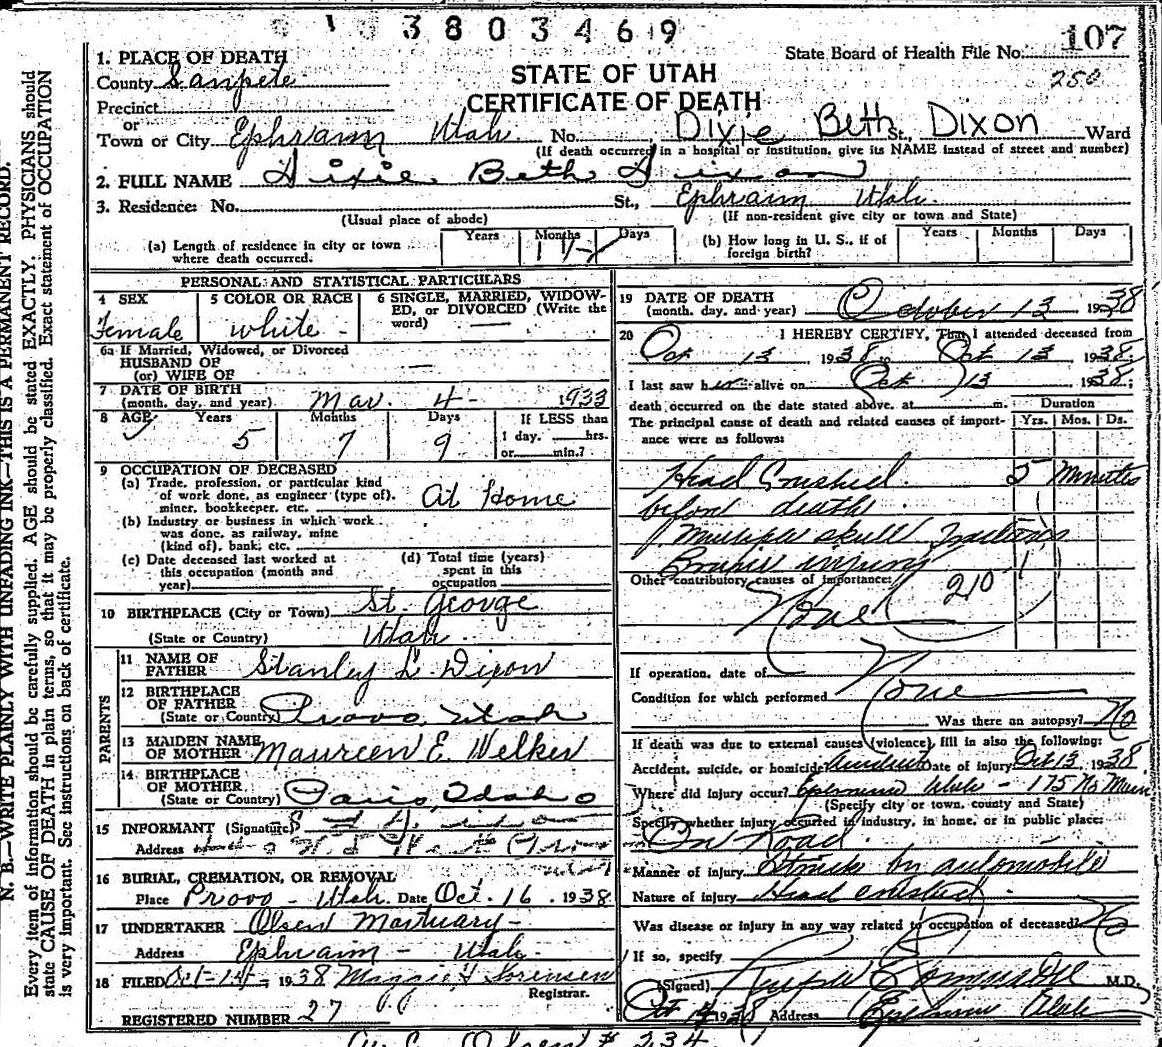 3803469
107
State Board of Health File No.
250
1. PLACE OF DEATH
County Sanpete
STATE OF UTAH
CERTIFICATE OF DEATH
Precinct
or
Town or City Ephraim Utah No. Dixie Beth St., Dixon Ward
(If death occurred in a hospital or institution, give its NAME instead of street and number)
2. FULL NAME Dixie Beth Dixon
3. Residence: No. St., Ephraim Utah.
(Usual place of abode) (If non-resident give city or town and State)
(a) Length of residence in city or town where death occurred. Years Months 1 1/2 Days
(b) How long in U. S., if of foreign birth? Years Months Days
PERSONAL AND STATISTICAL PARTICULARS
4 SEX Female
5 COLOR OR RACE white -
6 SINGLE, MARRIED, WIDOWED, or DIVORCED (Write the word) —
6a If Married, Widowed, or Divorced
HUSBAND OF
(or) WIFE OF —
7 DATE OF BIRTH
(month, day, and year) Mar. 4 - 1933
8 AGE Years 5 Months 7 Days 9 If LESS than 1 day. hrs. or min.?
9 OCCUPATION OF DECEASED
(a) Trade, profession, or particular kind of work done, as engineer (type of), miner, bookkeeper, etc. At Home
(b) Industry or business in which work was done, as railway, mine (kind of), bank, etc.
(c) Date deceased last worked at this occupation (month and year)
(d) Total time (years) spent in this occupation
10 BIRTHPLACE (City or Town) St. George
(State or Country) Utah.
PARENTS
11 NAME OF FATHER Stanley L. Dixon
12 BIRTHPLACE OF FATHER
(State or Country) Provo, Utah
13 MAIDEN NAME OF MOTHER Maureen E. Welker
14 BIRTHPLACE OF MOTHER
(State or Country) Paris, Idaho
15 INFORMANT (Signature)
Address
16 BURIAL, CREMATION, OR REMOVAL
Place Provo - Utah. Date Oct. 16 . 1938
17 UNDERTAKER Olsen Mortuary -
Address Ephraim - Utah.
18 FILED Oct-14- 1938 Maggie F Sorensen
Registrar.
REGISTERED NUMBER 27
19 DATE OF DEATH
(month, day, and year) October 13 1938
20 I HEREBY CERTIFY, That I attended deceased from
Oct 13 1938 to Oct 13 1938.
I last saw h alive on Oct 13 1938;
death occurred on the date stated above, at m.
Duration
The principal cause of death and related causes of importance were as follows: Yrs. Mos. Ds.
Head Crushed 5 minutes
before death
Multiple skull fractures
injury
Other contributory causes of importance: 210
None
If operation, date of
Condition for which performed None
Was there an autopsy? No
If death was due to external causes (violence) fill in also the following:
Accident, suicide, or homicide Accident Date of injury Oct 13, 1938
Where did injury occur? Ephraim Utah - 175 No Main
(Specify city or town, county and State)
Specify whether injury occurred in industry, in home, or in public place:
On Road
Manner of injury Struck by automobile
Nature of injury Head crushed.
Was disease or injury in any way related to occupation of deceased? No
If so, specify
(Signed) M.D.
Oct 14 1938 Address Ephraim Utah
# 234
N. B.—WRITE PLAINLY WITH UNFADING INK—THIS IS A PERMANENT RECORD.
Every item of information should be carefully supplied. AGE should be stated EXACTLY. PHYSICIANS should
state CAUSE OF DEATH in plain terms, so that it may be properly classified. Exact statement of OCCUPATION
is very important. See instructions on back of certificate.